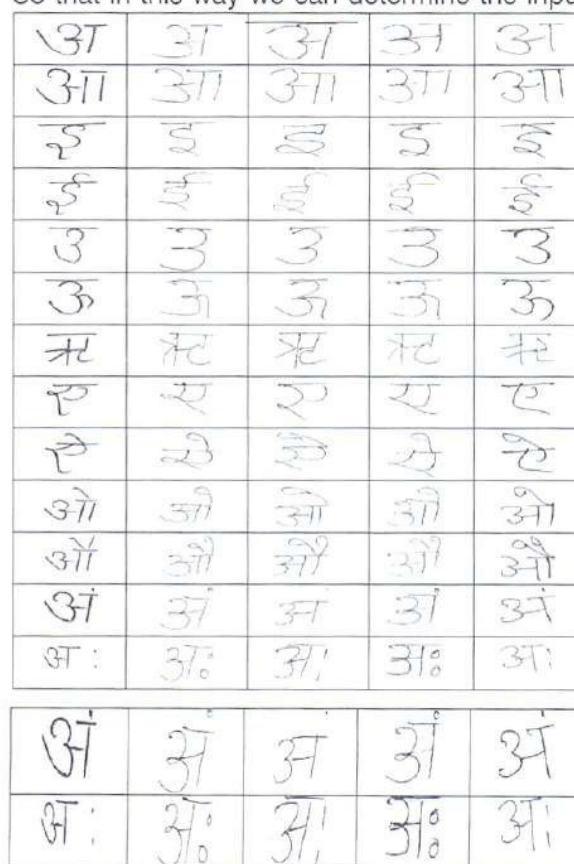 So that in this way we can determine the input
अ अ अ अ अ
आ आ आ आ आ
इ इ इ इ इ
ई ई ई ई ई
उ उ उ उ उ
ऊ ऊ ऊ ऊ ऊ
ऋ ऋ ऋ ऋ ऋ
ए ए ए ए ए
ऐ ऐ ऐ ऐ ऐ
ओ ओ ओ ओ ओ
औ औ औ औ औ
अं अं अं अं अं
अः अः अः अः अः
अं अं अं अं अं
अः अः अः अः अः